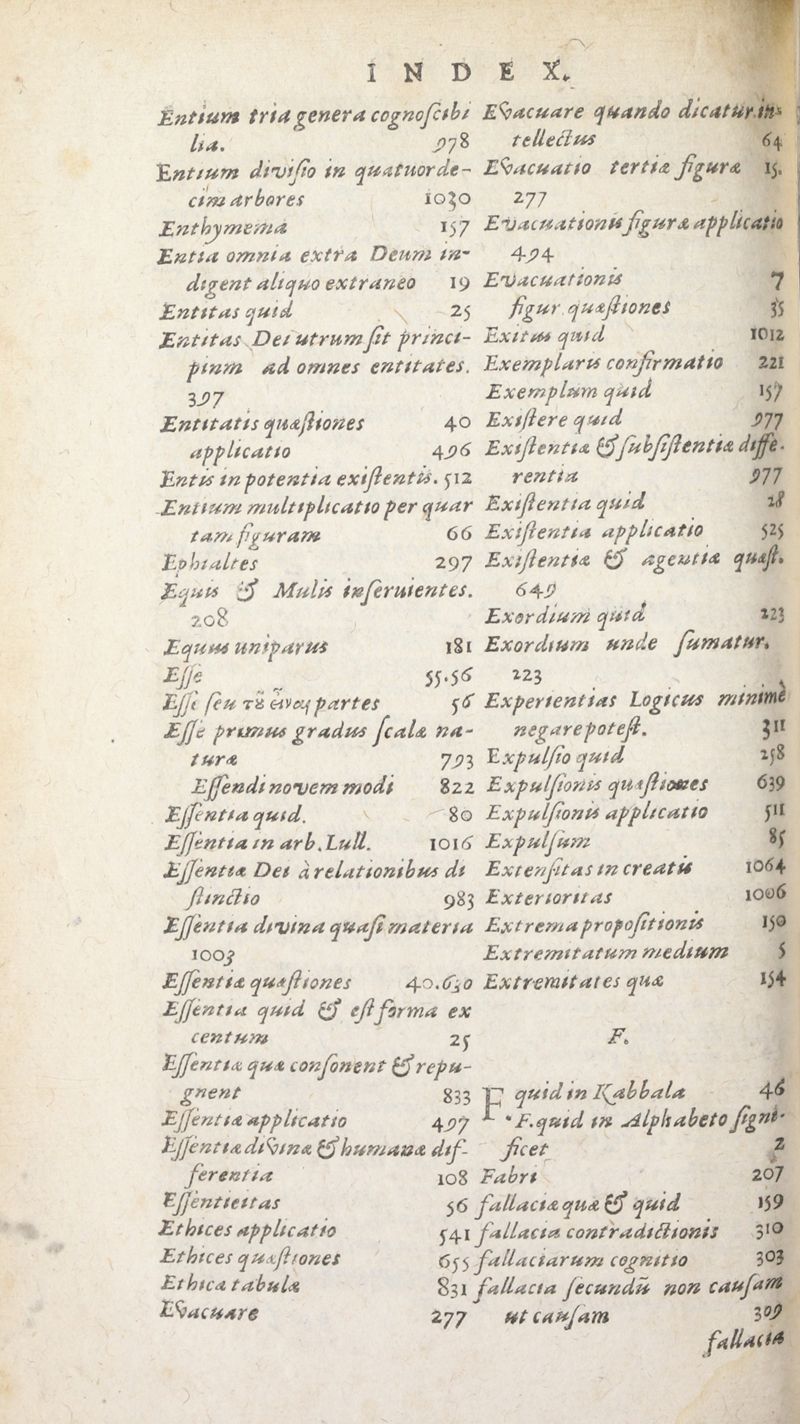 INDEX.
Entium tria genera cognoſcibi
lia. 978
Entium diviſio in quatuorde-
cim arbores 1030
Enthymema 157
Entia omnia extra Deum in-
digent aliquo extraneo 19
Entitas quid 25
Entitas Dei utrum ſit princi-
pium ad omnes entitates.
397
Entitatis quæſtiones 40
applicatio 496
Entis in potentia exiſtentis. 512
Entium multiplicatio per quar
tam figuram 66
Ephialtes 297
Equis & Mulis inſeruientes.
208
Equus uniparus 181
Eſſe 55.56
Eſſe ſeu τȣ͂ partes 56
Eſſe primus gradus ſcalæ na-
turæ 793
Eſſendi novem modi 822
Eſſentia quid. 80
Eſſentia in arb. Lull. 1016
Eſſentiæ Dei à relationibus di
ſtinctio 983
Eſſentia divina quaſi materia
1003
Eſſentiæ quæſtiones 40.630
Eſſentia quid & eſt forma ex
centum 25
Eſſentiæ quæ conſonent & repu-
gnent 833
Eſſentiæ applicatio 497
Eſſentiæ divinæ & humanæ dif-
ferentia 108
Eſſentieitas 56
Ethices applicatio 541
Ethices quæſtiones 655
Ethica tabula 831
Evacuare 277
Evacuare quando dicatur in-
tellectus 64
Evacuatio tertiæ figuræ 15.
277
Evacuationis figuræ applicatio
494
Evacuationis 7
figur. quæſtiones 35
Exitus quid 1012
Exemplaris confirmatio 221
Exemplum quid 157
Exiſtere quid 977
Exiſtentiæ & ſubſiſtentiæ diffe-
rentia 977
Exiſtentia quid 28
Exiſtentia applicatio 525
Exiſtentiæ & agentiæ quæſt.
649
Exordium quid 223
Exordium unde ſumatur.
223
Experientias Logicus minimè
negare poteſt. 311
Expulſio quid 258
Expulſionis quæſtiones 639
Expulſionis applicatio 511
Expulſum 85
Extenſitas in creatis 1064
Exterioritas 1006
Extrema propoſitionis 150
Extremitatum medium 5
Extremitates quæ 154
F.
F quid in Kabbala 46
F. quid in Alphabeto ſigni-
ficet 2
Fabri 207
fallaciæ quæ & quid 159
fallacia contradictionis 310
fallaciarum cognitio 303
fallacia ſecundũ non cauſam
ut cauſam 309
fallacia